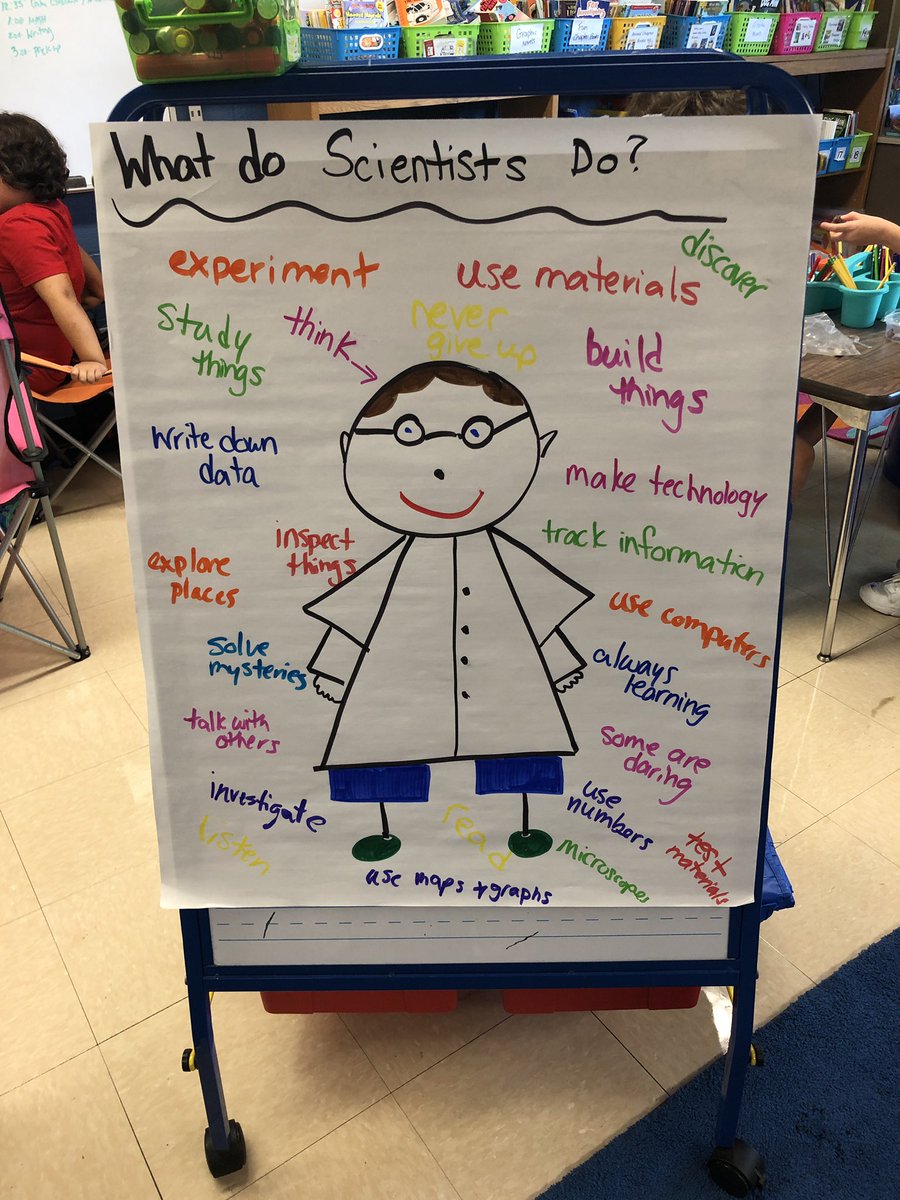 What do Scientists Do?
experiment
use materials
discover
study
things
think
never
give up
build
things
write down
data
make technology
inspect
things
track information
explore
places
use computers
solve
mysteries
always
learning
talk with
others
some are
daring
investigate
use
numbers
listen
read
microscopes
test
materials
use maps + graphs